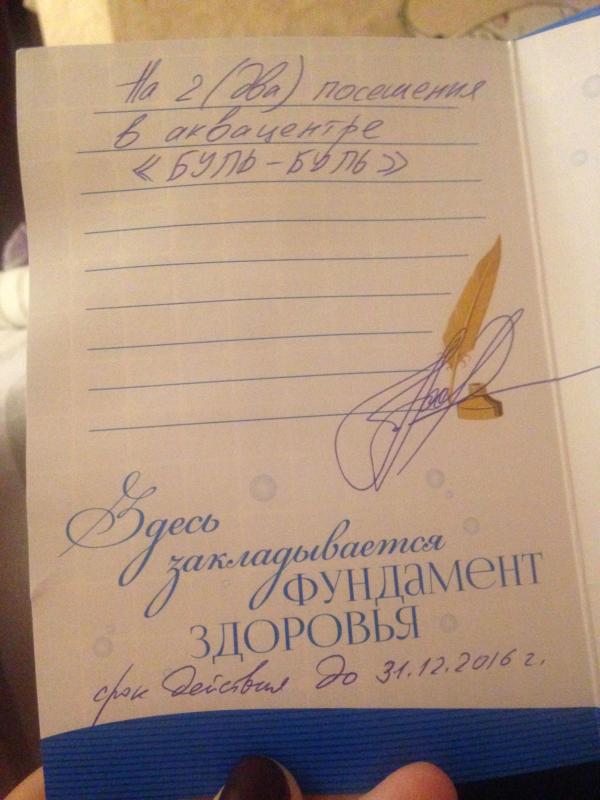 На 2 (два) посещения
в аквацентре
«БУЛЬ-БУЛЬ»
Здесь
закладывается
ФУНДАМЕНТ
ЗДОРОВЬЯ
срок действия до 31.12.2016 г.